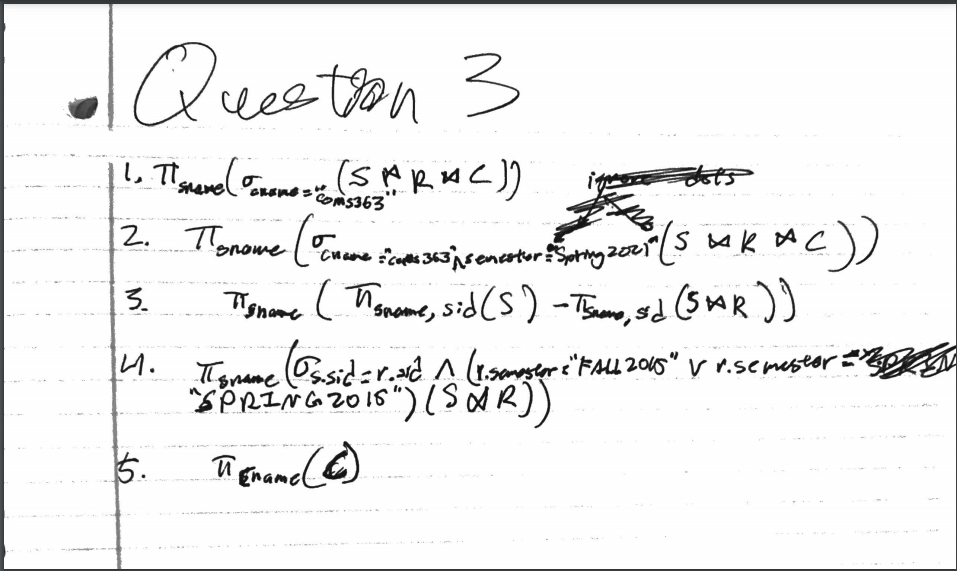 Question 3
1. π sname(σ cname="coms363" (S ⋈ R ⋈ C))
2. π sname(σ cname="coms363" ∧ semester="Spring2021" (S ⋈ R ⋈ C))
3. π sname(π sname, sid(S) - π sname, sid(S ⋈ R))
4. π sname(σ s.sid=r.sid ∧ (r.semester="FALL2015" ∨ r.semester=
"SPRING2015")(S ⋈ R))
5. π Ename(C)